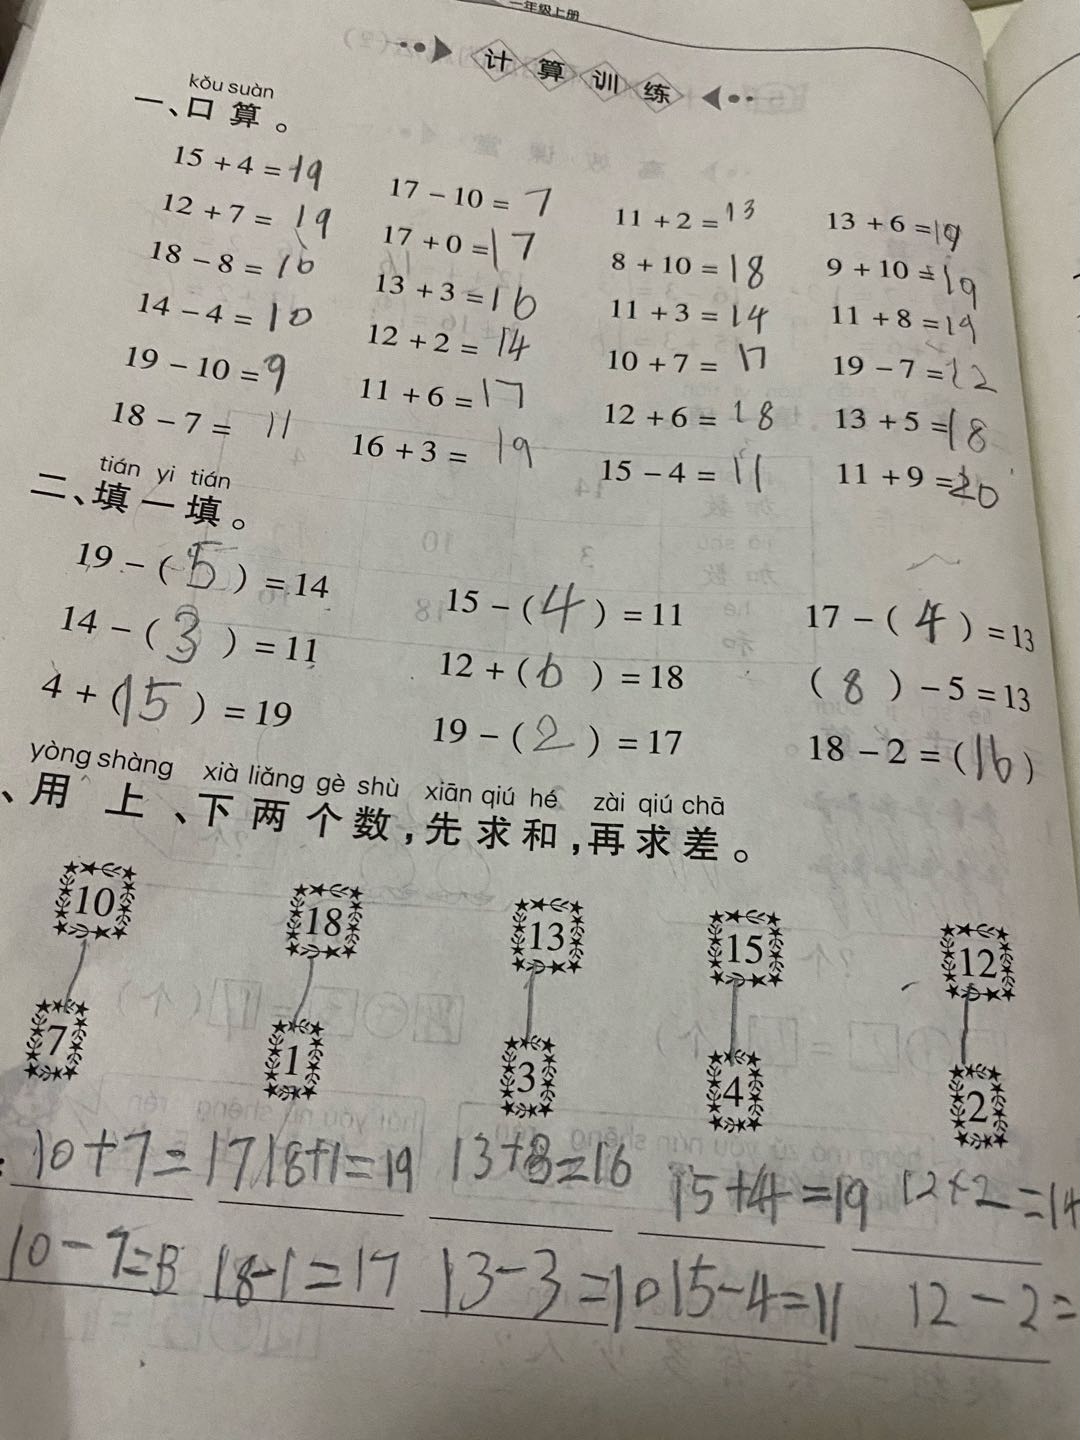 一年级上册
计算训练
kǒu suàn
一、口算。
15+4=19 17-10=7 11+2=13 13+6=19
12+7=19 17+0=17 8+10=18 9+10=19
18-8=10 13+3=16 11+3=14 11+8=19
14-4=10 12+2=14 10+7=17 19-7=12
19-10=9 11+6=17 12+6=18 13+5=18
18-7=11 16+3=19 15-4=11 11+9=20
tián yi tián
二、填一填。
19-(5)=14 15-(4)=11 17-(4)=13
14-(3)=11 12+(6)=18 (8)-5=13
4+(15)=19 19-(2)=17 18-2=(16)
yòng shàng xià liǎng gè shù xiān qiú hé zài qiú chā
、用上、下两个数,先求和,再求差。
10 18 13 15 12
7 1 3 4 2
10+7=17 18+1=19 13+3=16 15+4=19 12+2=14
10-7=3 18-1=17 13-3=10 15-4=11 12-2=